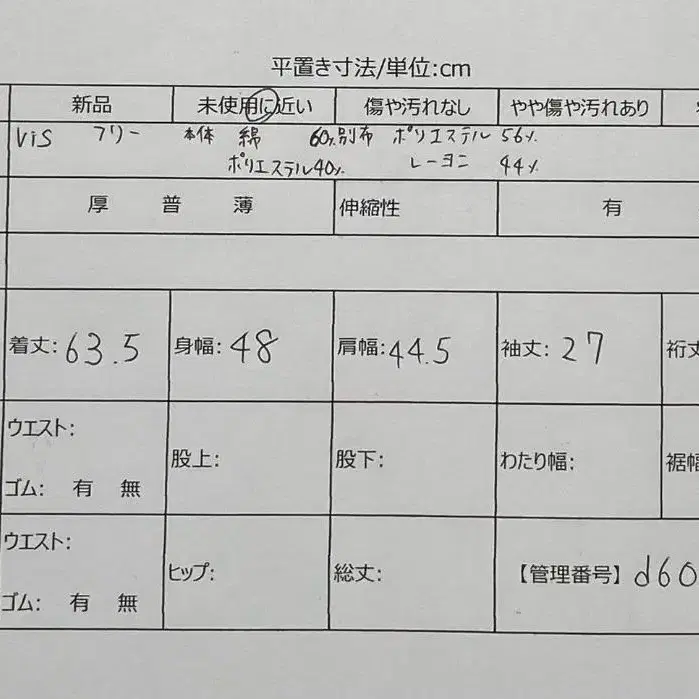 平置き寸法/単位:cm
新品 未使用に近い 傷や汚れなし やや傷や汚れあり
ViS フリー 本体 綿 60% 別布 ポリエステル 56%
ポリエステル40% レーヨン 44%
厚 普 薄 伸縮性 有
着丈: 63.5 身幅: 48 肩幅: 44.5 袖丈: 27 裄丈
ウエスト:
股上: 股下: わたり幅: 裾幅
ゴム: 有 無
ウエスト:
ヒップ: 総丈: 【管理番号】 d60
ゴム: 有 無